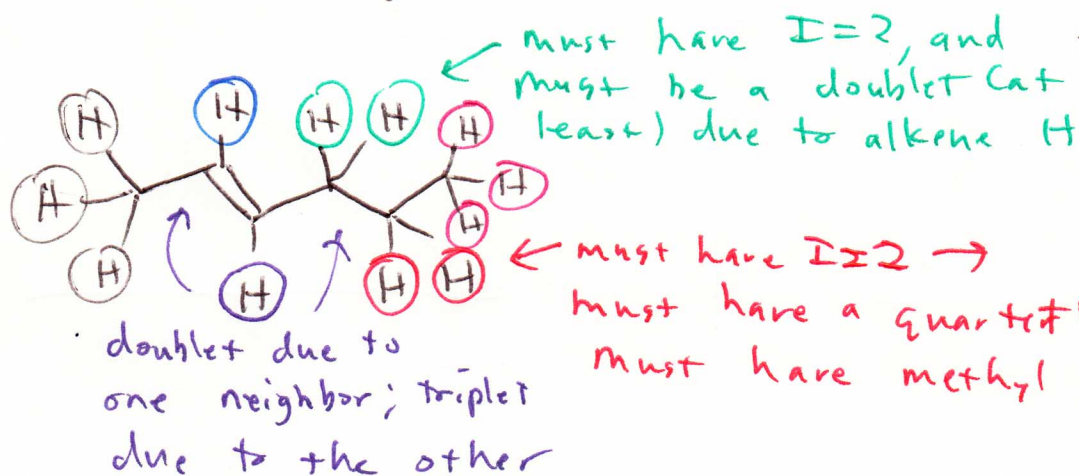 must have I=2, and
must be a doublet (at
least) due to alkene (H
H H H H H
H H
H
H H H H
must have I=2 →
must have a quartet
must have methyl
doublet due to
one neighbor; triplet
due to the other